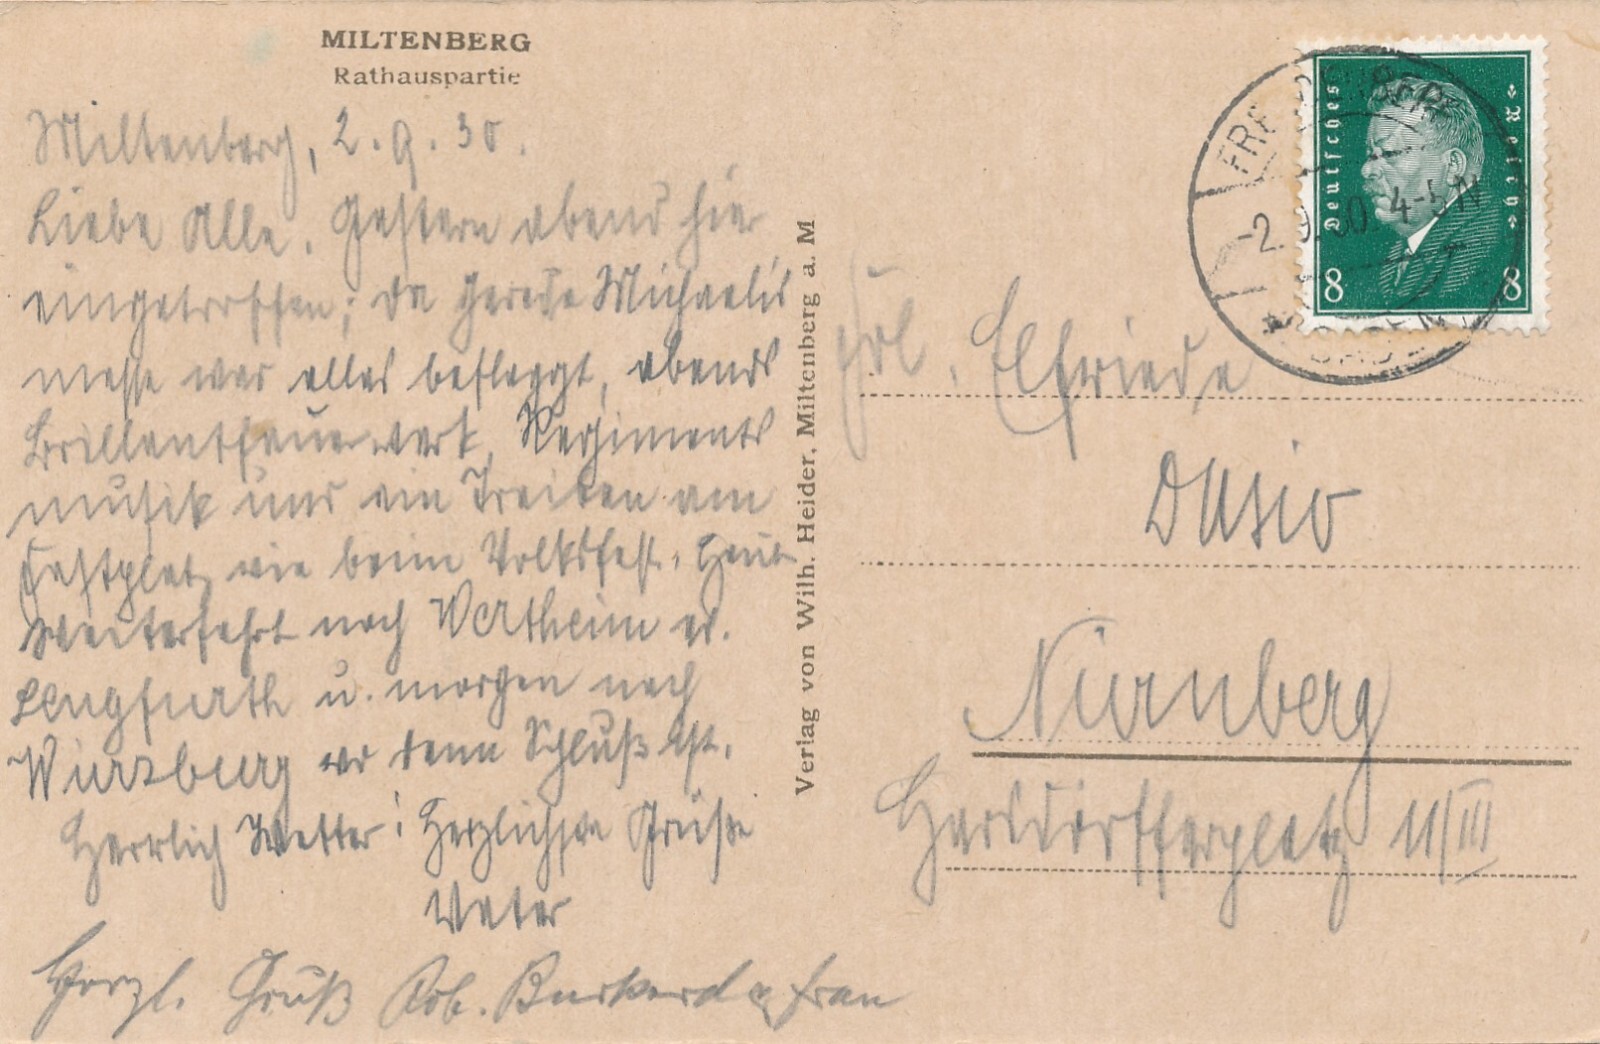 MILTENBERG
Rathauspartie
Miltenberg, 2.9.30.
Liebe Alle. Gestern abend hier
eingetroffen; da gerade Michaelis
messe war alles beflaggt, abends
Brillantfeuerwerk, Regiments
musik und ein Treiben am
Festplatz wie beim Volksfest. Heute
Weiterfahrt nach Wertheim
Lengfurth u. morgen nach
Würzburg wo denn Schluß ist.
Herrlich Wetter! Herzlichste Grüße
Vater
Herzl. Gruß Rob. Burkard u Frau
Verlag von Wilh. Heider, Miltenberg a. M
Deutsches Reich
8 8
-2.9.30. 4-5 N
Frl. Elfriede
Dasio
Nürnberg
Harsdörfferplatz 11/III